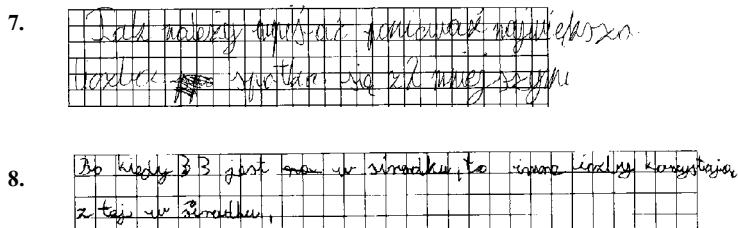 7. Tak należy wpisać ponieważ największa
liczba spotka się z 2 mniejszymi
8. Bo kiedy 33 jest w środku, to inne liczby korzystają
z tej w środku,